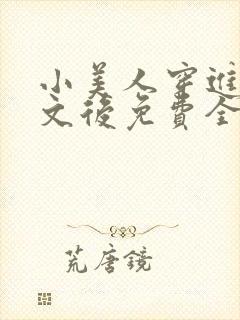 小美人穿進
文後免費全
荒唐鏡